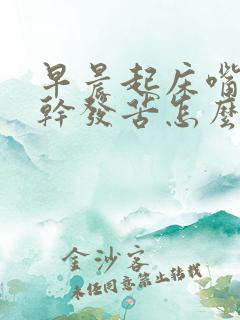 早晨起床嘴
幹發苦怎麼
金沙客
未经同意禁止转载